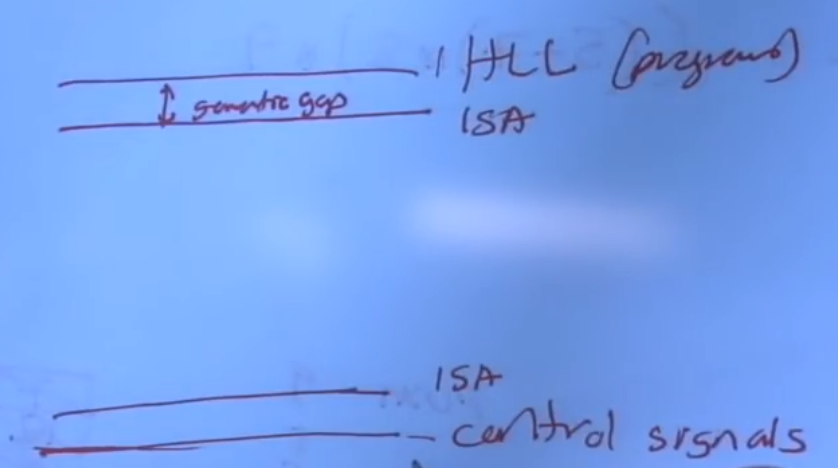 HLL (programs)
semantic gap
ISA
ISA
control signals